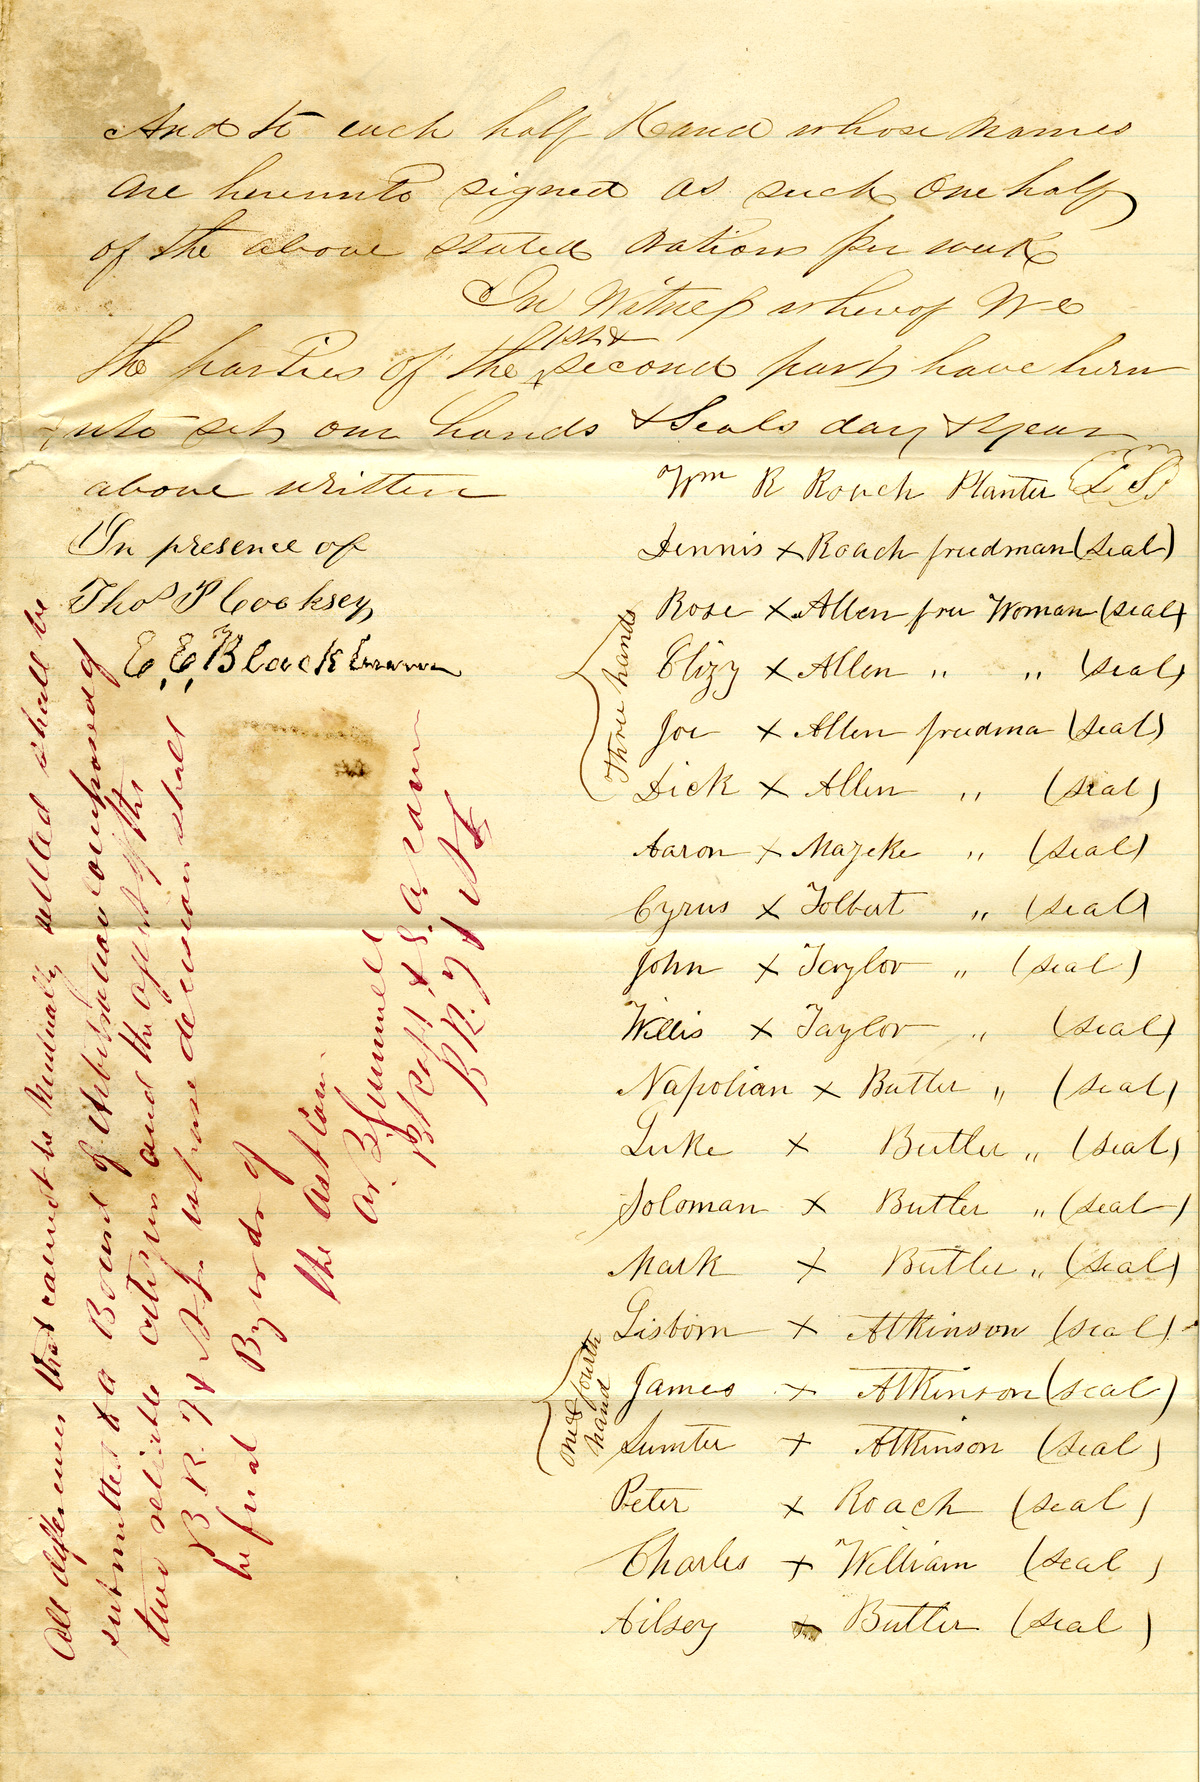 And to each half Hand whose names
are hereunto signed as such One half
of the above stated rations per week
In Witness whereof We
the parties of the 1st & second part have here
unto set our hands & Seals day & year
above written
In presence of
Thos P Cooksey
E, E, Blackmon
Wm R Roach Planter (L S)
Dennis x Roach freedman (seal)
Rose x Allen free Woman (seal)
Three hands
Elizy x Allen " " (seal)
Joe x Allen freedma (seal)
Dick x Allen " (seal)
Aaron x Mazeke " (seal)
Cyrus x Tolbert " (seal)
John x Taylor " (seal)
Willis x Taylor " (seal)
Napolian x Butler " (seal)
Luke x Butler " (seal)
Soloman x Butler " (seal)
Mark x Butler " (seal)
Lisbom x Atkinson (seal)
one fourth
hand
James x Atkinson (seal)
Sumter x Atkinson (seal)
Peter x Roach (seal)
Charles x William (seal)
Ailsey x Butler (seal)
All differences that cannot be Mutually settled shall be
submitted to a Board of Arbitration composed of
two reliable citizens and the agent of the
B. R. F & A. L. whose decision shall
be final By order of
the Ast Com
A.
Bt Capt &
B R. F & A L